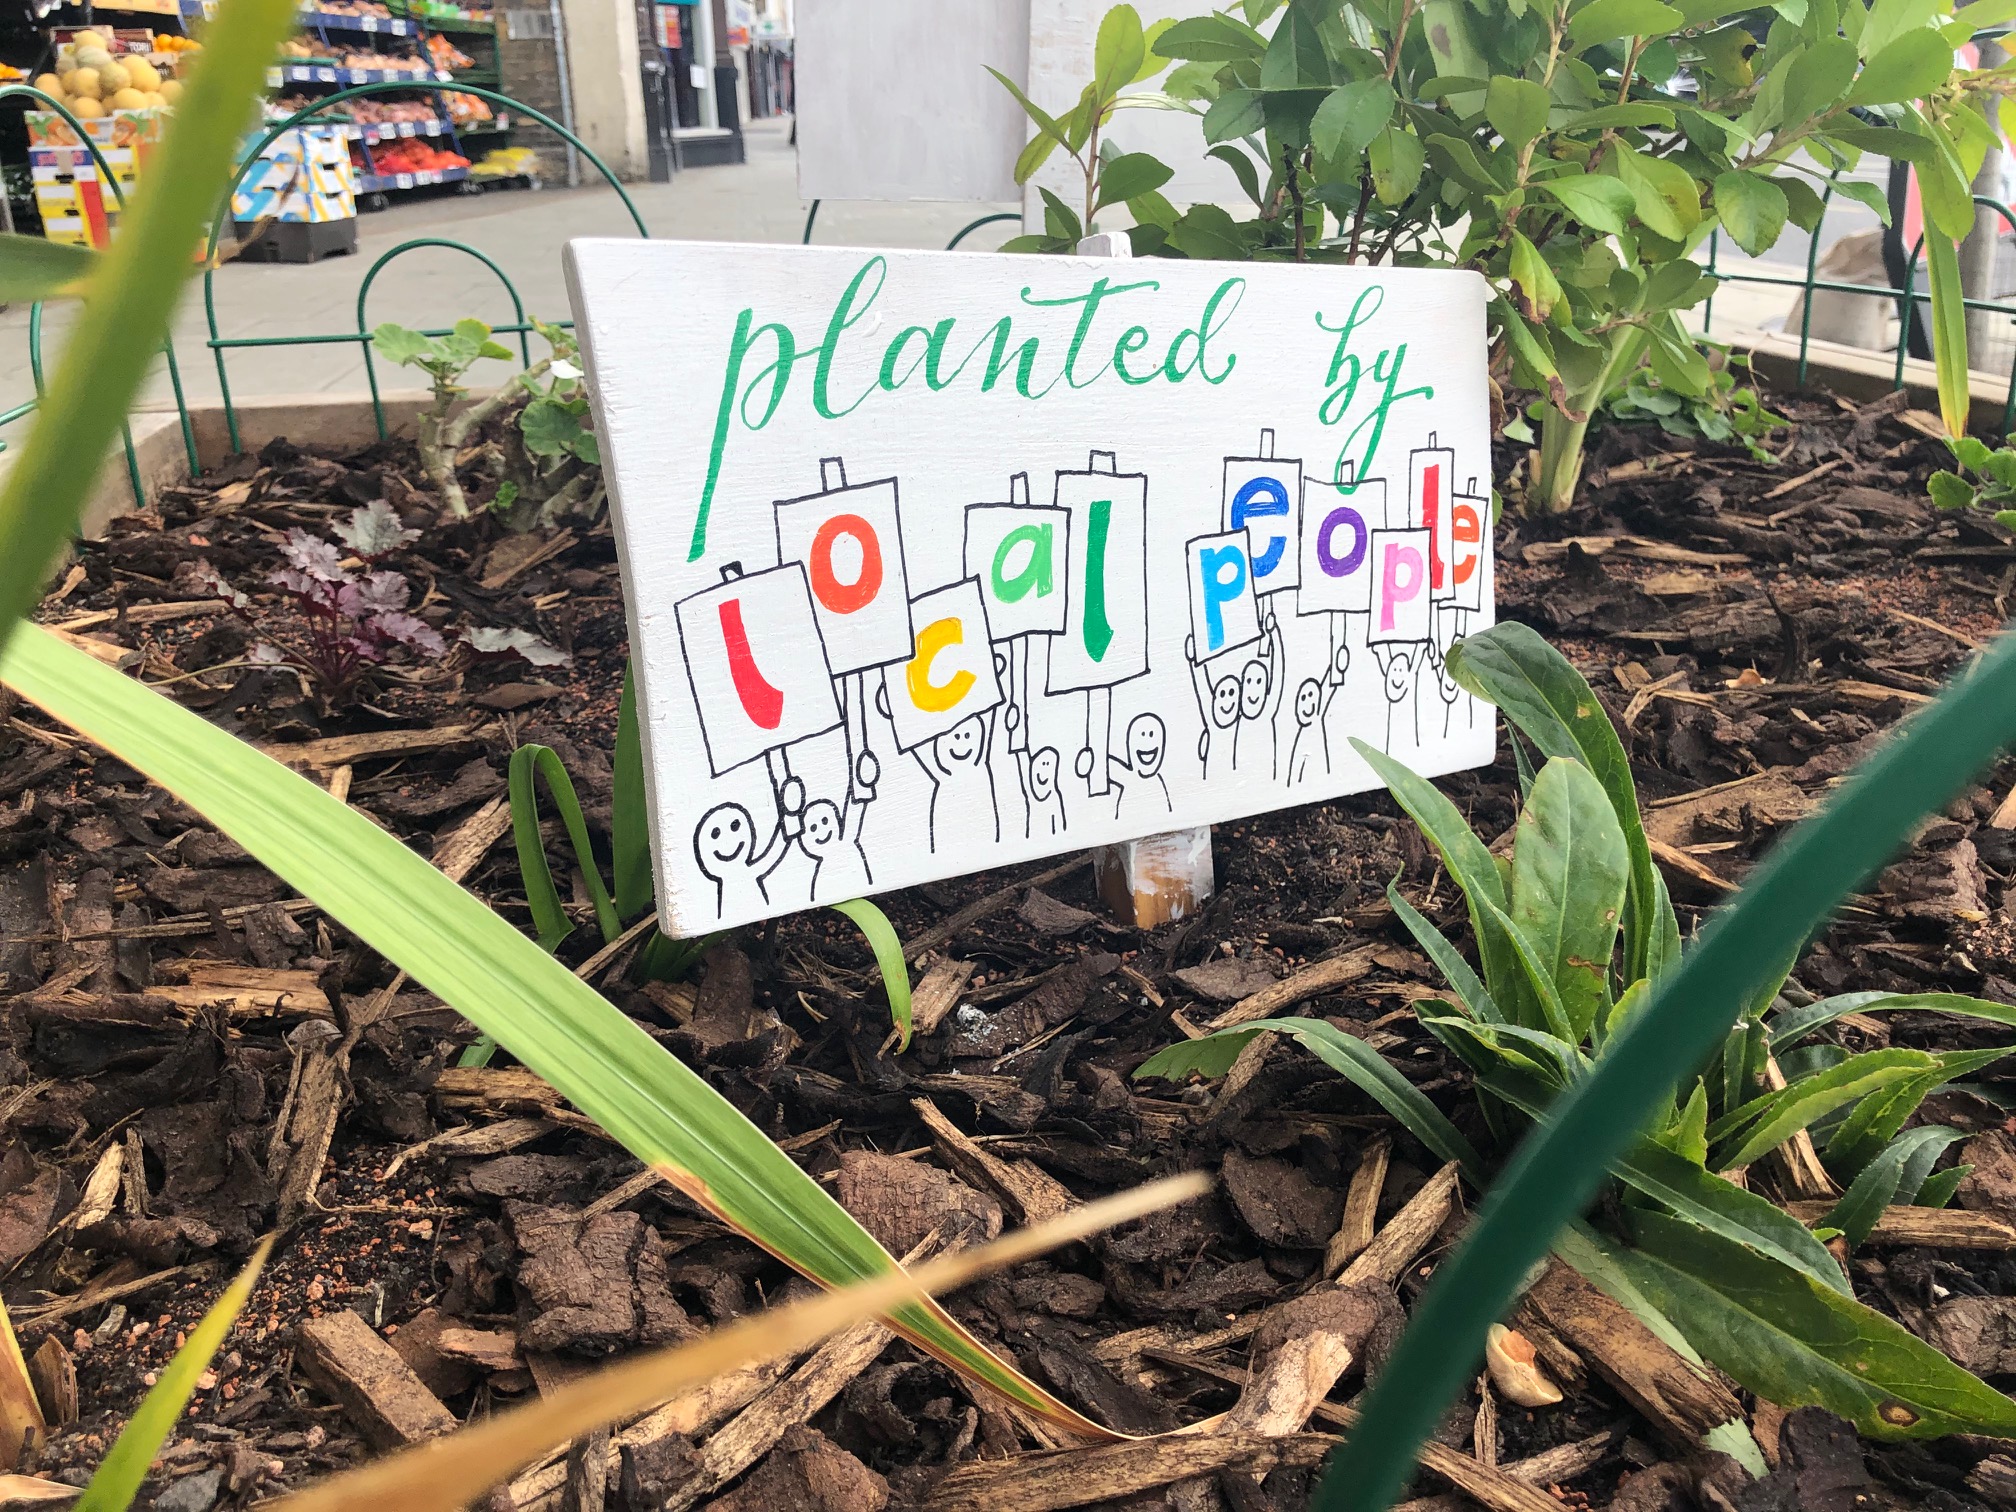 planted by
local people